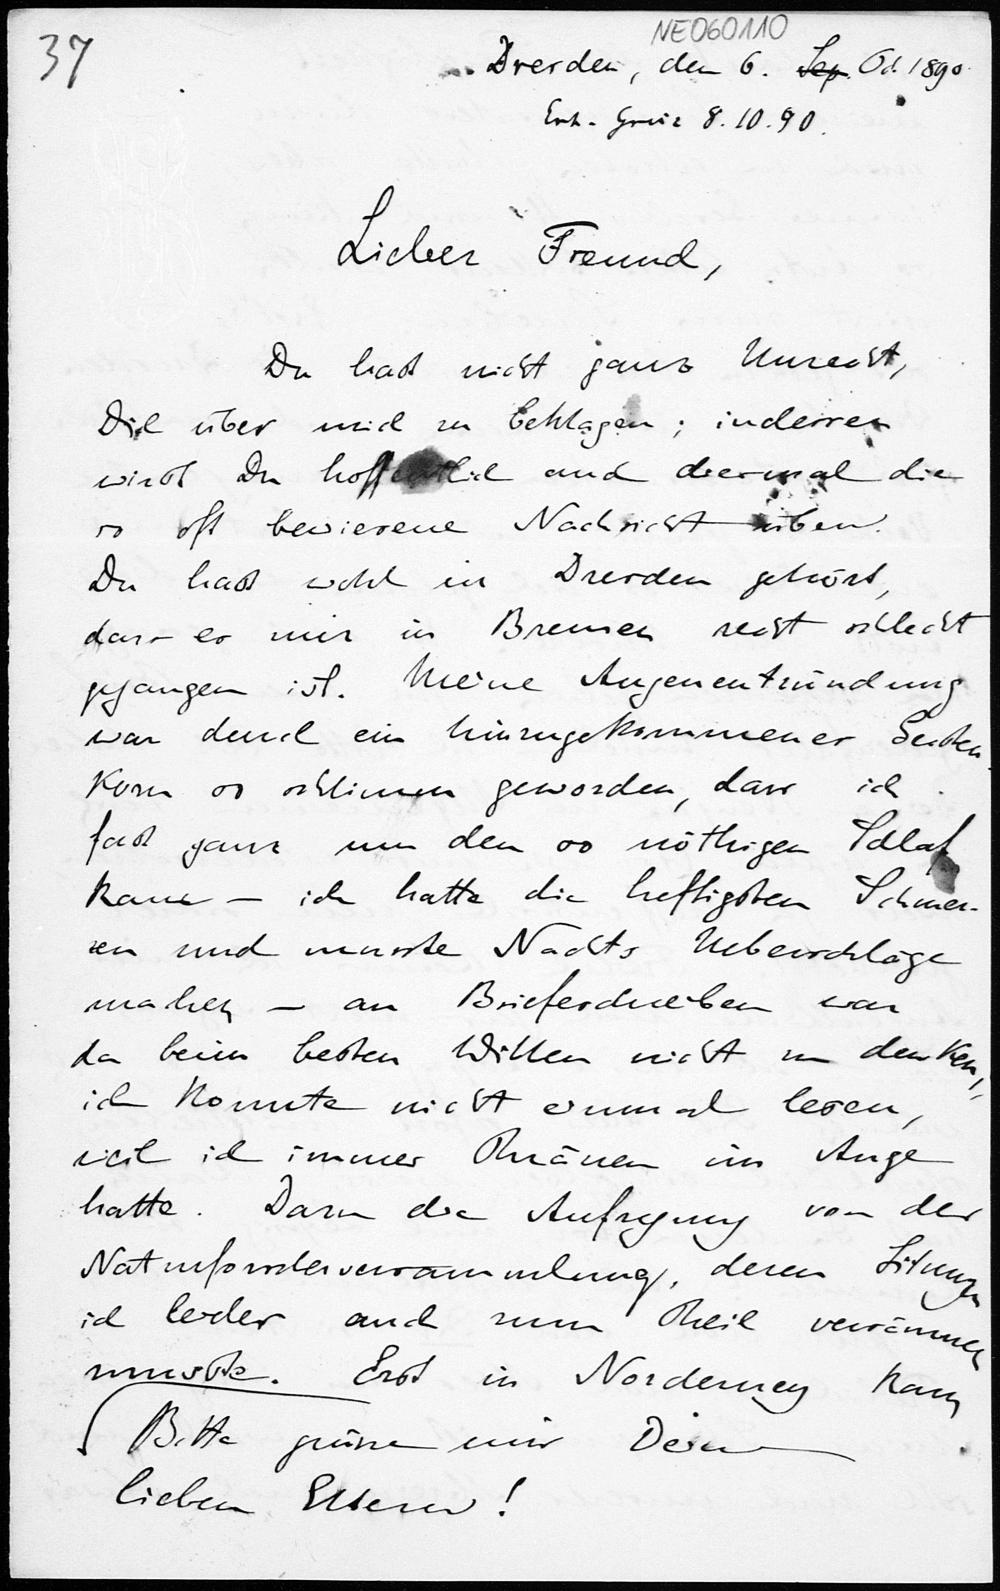 37
NE060110
Dresden, den 6. Sep. Oct. 1890
Erh. Greiz 8.10.90.
Lieber Freund,
Du hast nicht ganz Unrecht,
Dich über mich zu beklagen; indessen
wirst Du hoffentlich auch diesmal die
so oft bewiesene Nachsicht üben.
Du hast wohl in Dresden gehört,
dass es mir in Bremen recht schlecht
gegangen ist. Meine Augenentzündung
war durch ein hinzugekommenes Gersten-
korn so schlimm geworden, dass ich
fast ganz um den so nöthigen Schlaf
kam – ich hatte die heftigsten Schmer-
zen und musste Nachts Ueberschläge
machen – an Briefeschreiben war
da beim besten Willen nicht zu denken,
ich konnte nicht einmal lesen,
weil ich immer Thränen im Auge
hatte. Dazu die Aufregung von der
Naturforscherversammlung, deren Sitzungen
ich leider auch zum Theil versäumen
musste. Erst in Norderney kam
Bitte grüsse mir Deine
lieben Eltern!